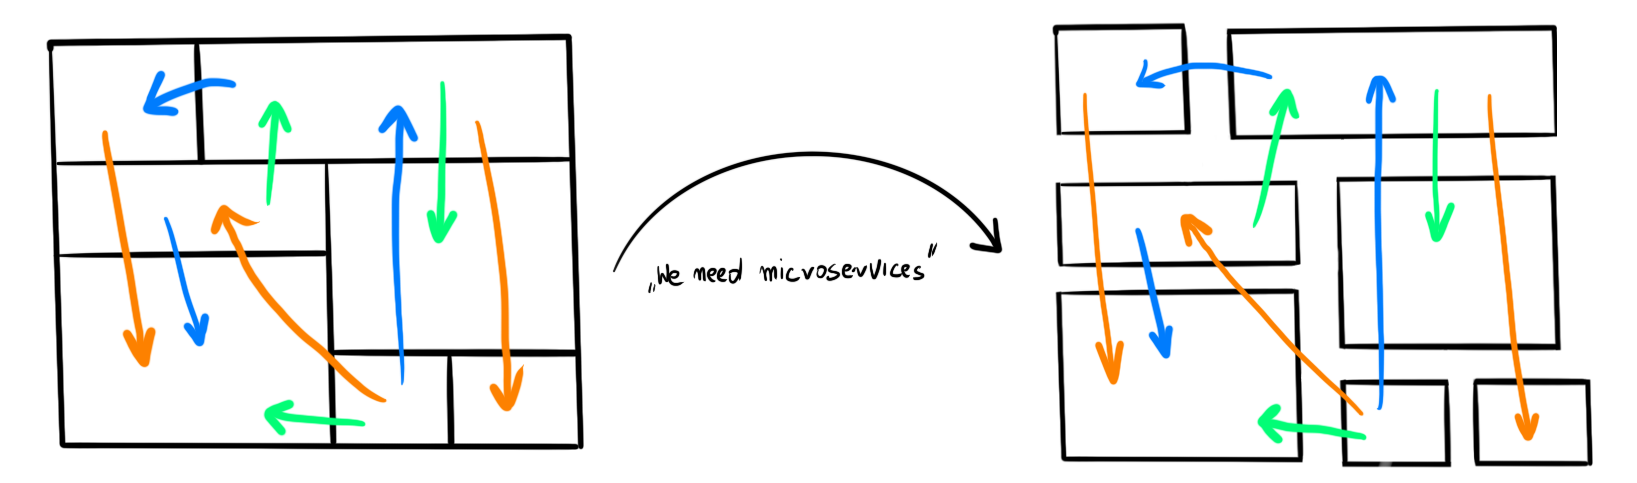 „We need microservices”